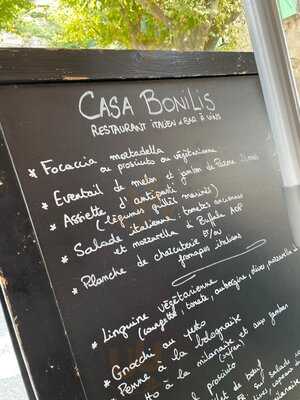 CASA BONILIS
RESTAURANT ITALIEN & BAR À VINS
* Focaccia mortadella
ou prosciuto ou végétarienne
* Eventail de melon et jambon de Parme
* Assiette d'antipasti
(légumes grillés marinés)
* Salade italienne: tomates anciennes
et mozzarella di Buffala AOP
* Planche de charcuterie et/ou
fromages italiens
* Linguine végétarienne
(courgette, tomate, aubergine, olive, mozzarella
* Gnocchi au
* Penne à la bolognaise
à la milanaise et aux
prosciuto
de bœuf